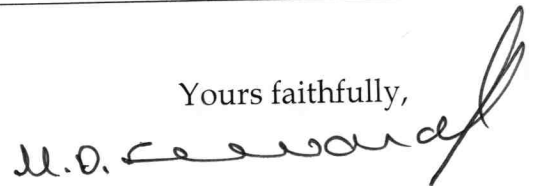 Yours faithfully,
M.D.